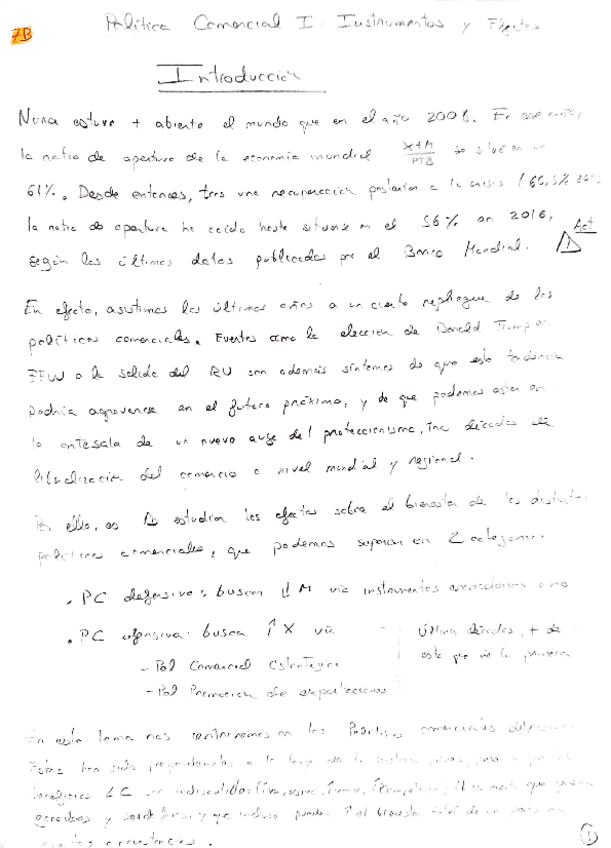 7B
Política Comercial I: Instrumentos y Efectos
Introducción
Nunca estuvo + abierto el mundo que en el año 2006. En ese
la ratio de apertura de la economía mundial X+M/PIB se situó en un
61%. Desde entonces, tras una recuperación posterior a la crisis (60,5%
la ratio de apertura ha caído hasta situarse en el 56% en 2016,
según los últimos datos publicados por el Banco Mundial. ! Act
En efecto, asistimos los últimos años a un cierto repliegue de las
políticas comerciales. Eventos como la elección de Donald Trump en
EEUU o la salida del RU son además síntomas de que esta tendencia
podría agravarse en el futuro próximo, y de que podemos estar en
la antesala de un nuevo auge del proteccionismo, tras décadas de
liberalización del comercio a nivel mundial y regional.
ello, es estudiar los efectos sobre el bienestar de las distintas
políticas comerciales, que podemos separar en 2 categorías:
• PC defensiva: buscan ↓↓ M vía instrumentos como
• PC ofensiva: busca ↑ X vía
- Pol Comercial Estratégica
- Pol Promoción de exportaciones
Últimas décadas, + de
este que de la primera
En este tema nos centraremos en las Políticas comerciales defensivas
Estas han sido a lo largo de la historia, pues, pese a que los
LC son indiscutibles que
y que incluso pueden ↑ el bienestar de un país en
ciertas circunstancias.
1